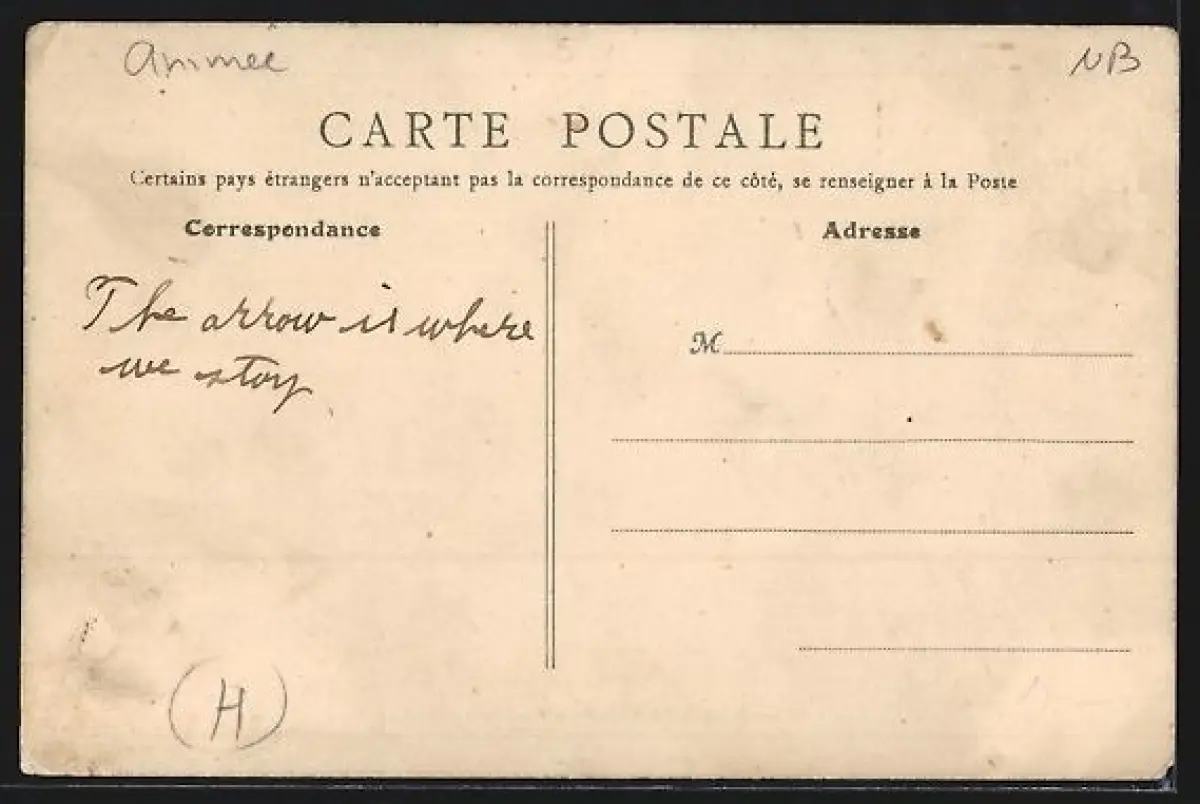 Animée
NB
CARTE POSTALE
Certains pays étrangers n'acceptant pas la correspondance de ce côté, se renseigner à la Poste
Correspondance
Adresse
The arrow is where
we stay
M
(H)